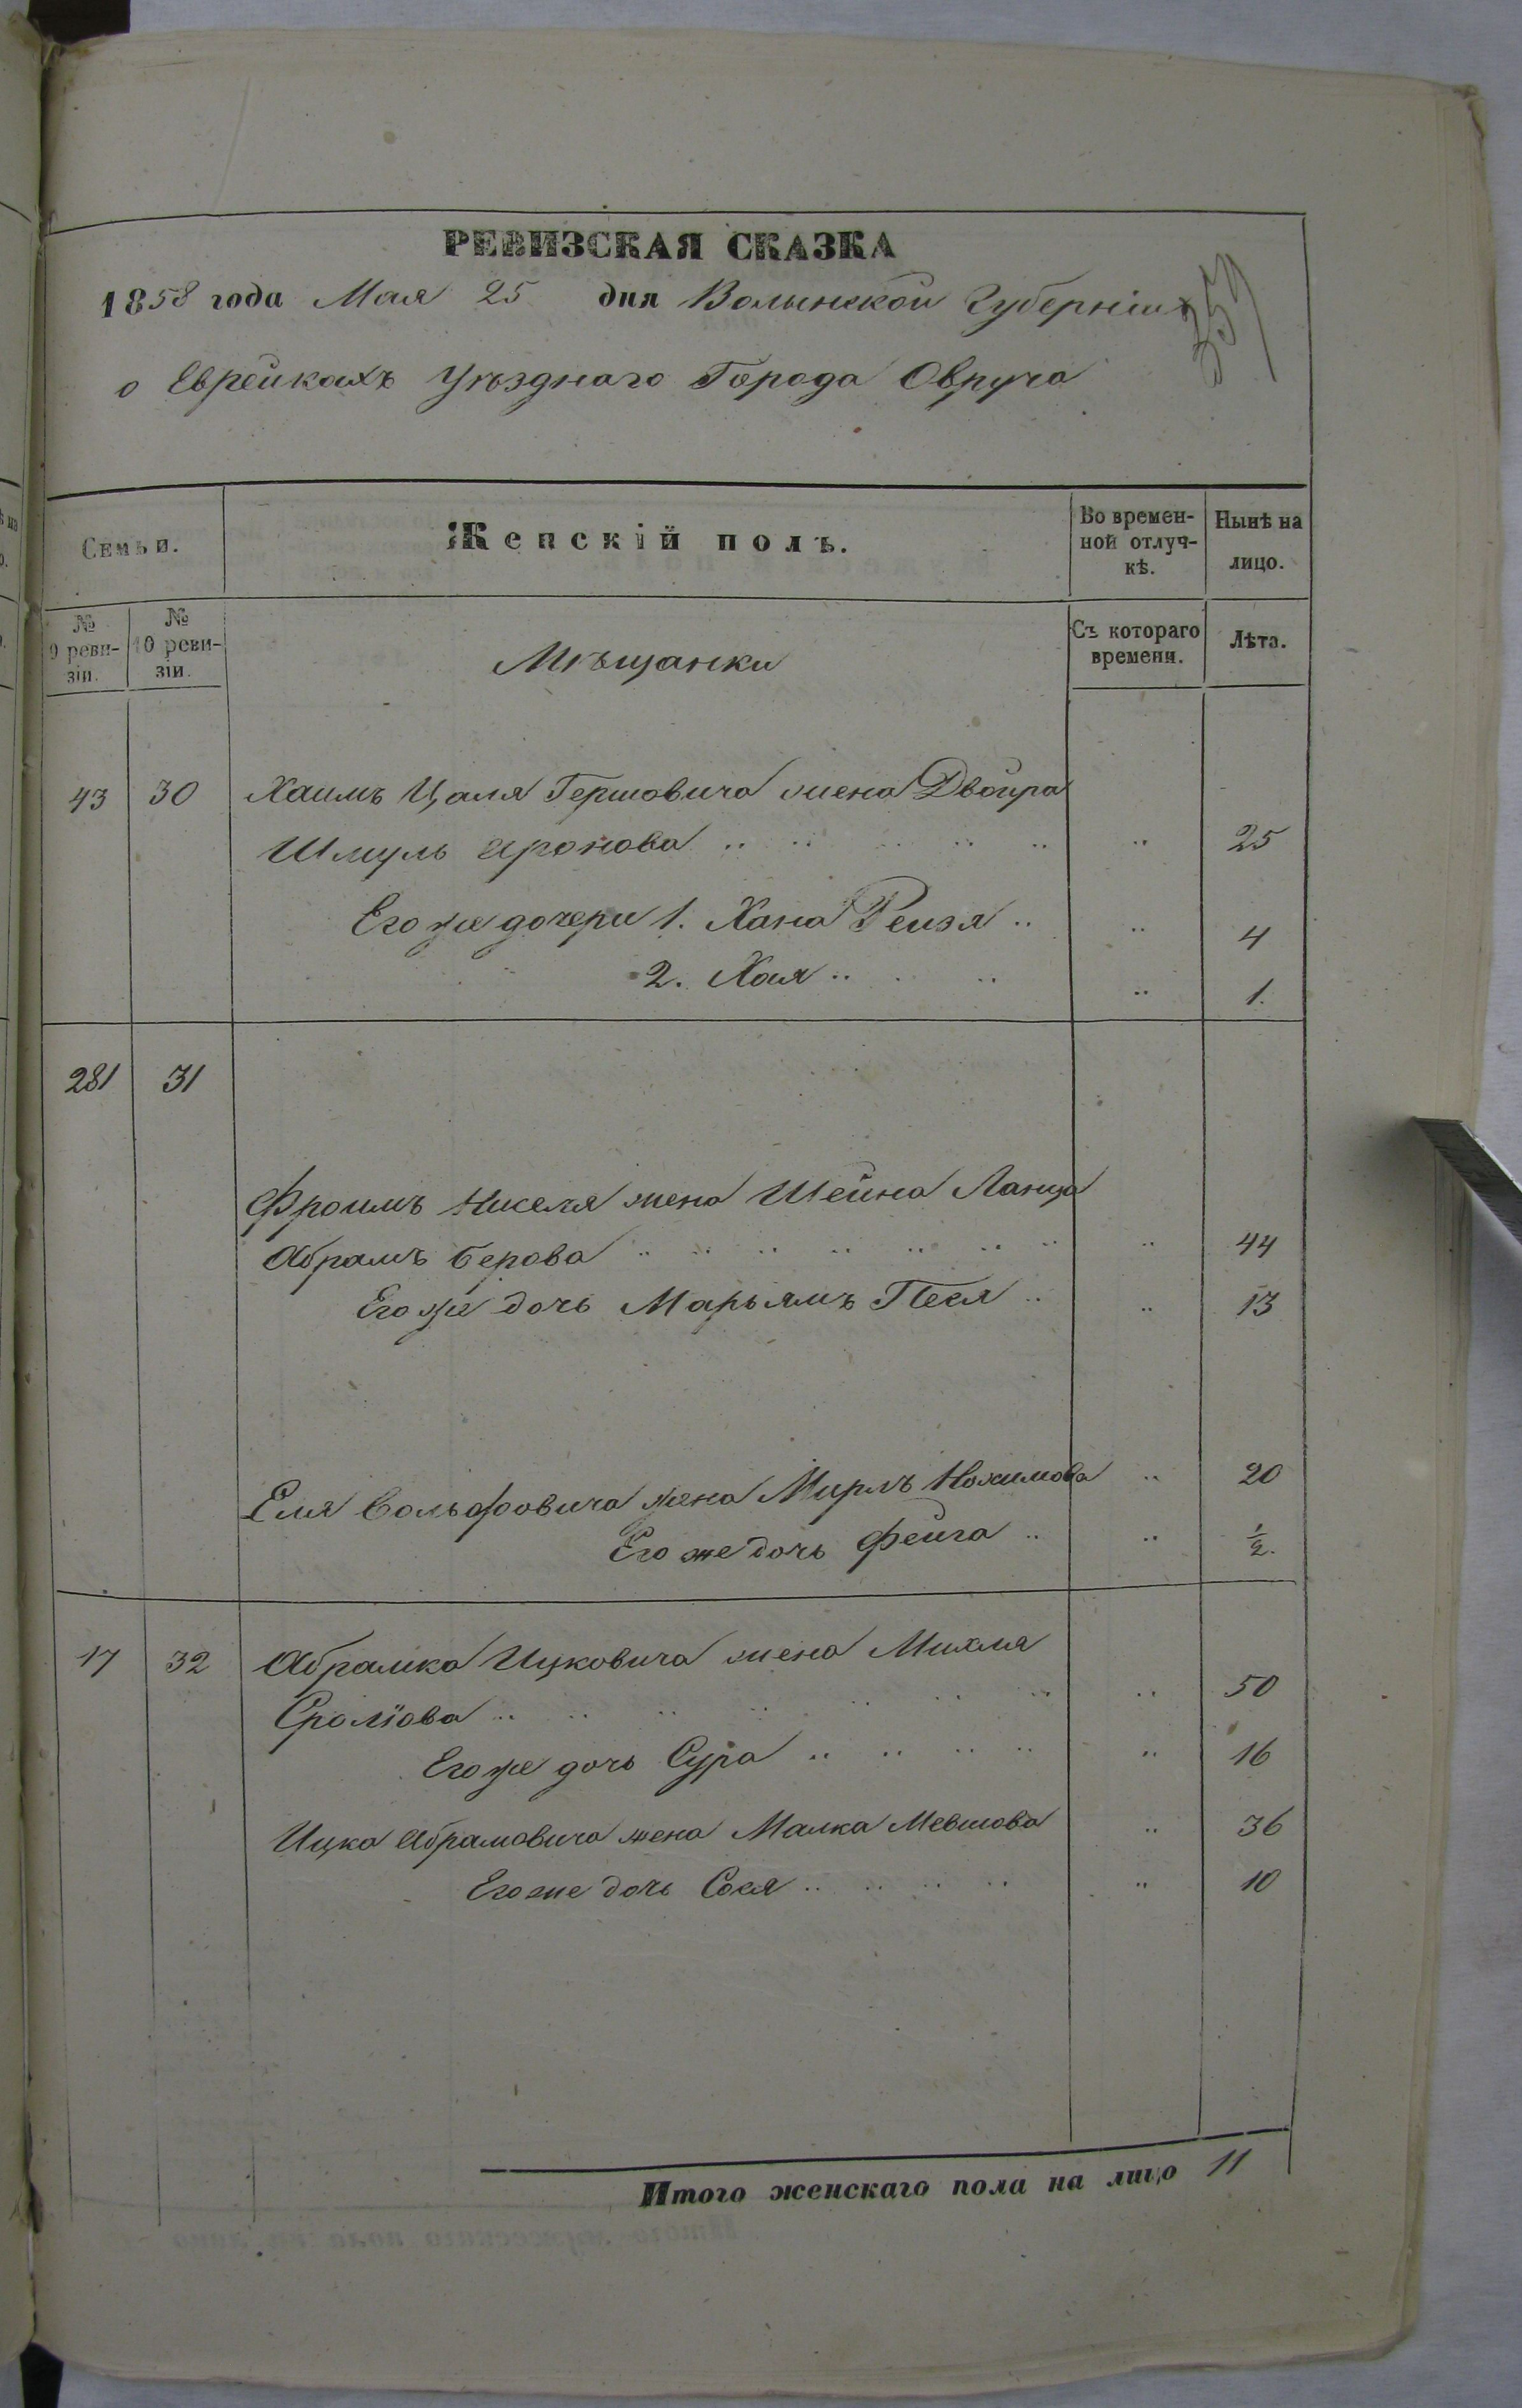 РЕВИЗСКАЯ СКАЗКА
1858 года Мая 25 дня Волынской Губерніи
о Еврейкахъ Уѣзднаго Города Овруча
Семьи.
Женскій полъ.
Во времен-
ной отлуч-
кѣ.
Нынѣ на
лицо.
№
9 реви-
зіи.
№
10 реви-
зіи.
Мѣщанки
Съ котораго
времени.
Лѣта.
43 30 Хаимъ Цаля Гершовича жена Двойра
Шмуль Аронова .. .. .. .. .. .. 25
Его же дочери 1. Хана Рейзя .. .. 4
2. Хая .. .. .. 1.
281 31
Фроимъ Киселя жена Шейна
Абрамъ Берова .. .. .. .. .. .. .. .. 44
Его же дочь Марьямъ Песя .. .. 13
Еля Вольфовича жена Мирлъ Нохимова .. 20
Его же дочь Фейга .. .. ½.
17 32 Абрамка Ицковича жена Михля
Сролiова .. .. .. .. .. .. .. .. 50
Его же дочь Сура .. .. .. .. .. 16
Ицка Абрамовича жена Малка Мевшова .. 36
Его же дочь Сося .. .. .. .. .. 10
Итого женскаго пола на лицо 11